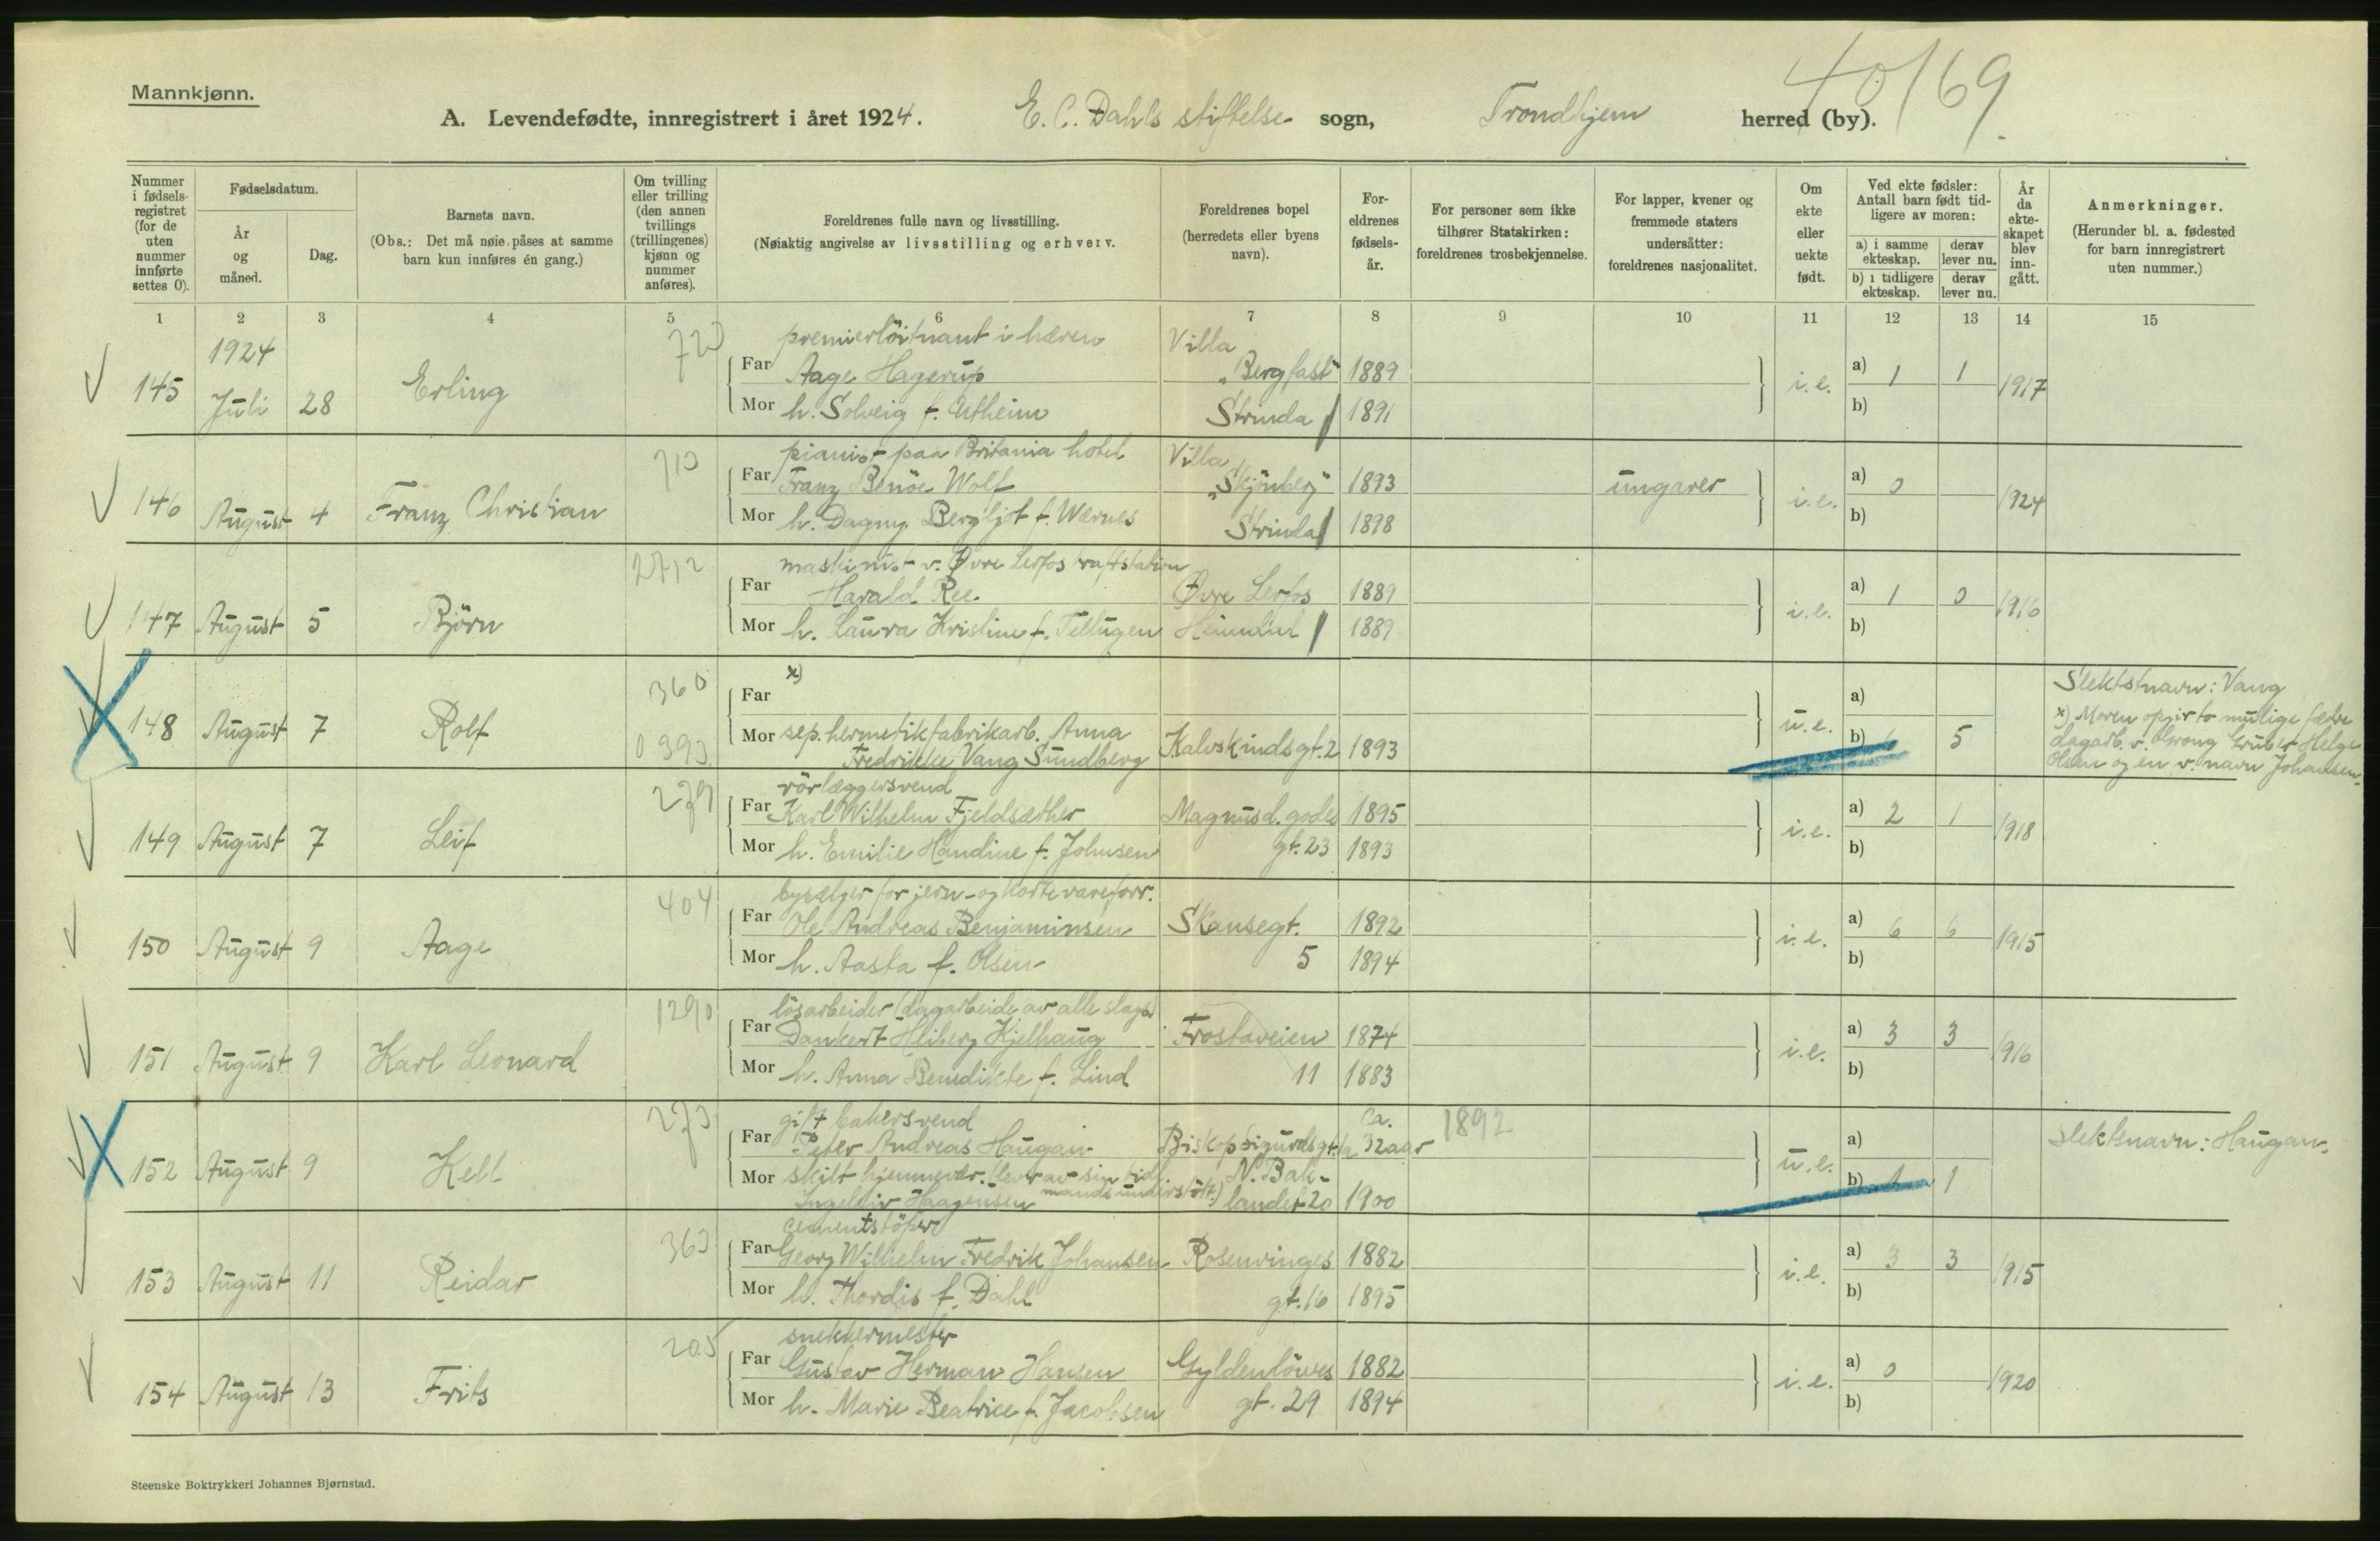 Mannkjønn.
40/69.
A. Levendefødte, innregistrert i året 1924. E. C. Dahls stiftelse sogn, Trondhjem herred (by).
Nummer i fødselsregistret (for de uten nummer innførte settes 0).
Fødselsdatum.
År og måned.
Dag.
Barnets navn.
(Obs.: Det må nøie påses at samme barn kun innføres én gang.)
Om tvilling eller trilling (den annen tvillings (trillingenes) kjønn og nummer anføres).
Foreldrenes fulle navn og livsstilling.
(Nøiaktig angivelse av livsstilling og erhverv.
Foreldrenes bopel (herredets eller byens navn).
Foreldrenes fødselsår.
For personer som ikke tilhører Statskirken: foreldrenes trosbekjennelse.
For lapper, kvener og fremmede staters undersåtter: foreldrenes nasjonalitet.
Om ekte eller uekte født.
Ved ekte fødsler: Antall barn født tidligere av moren:
a) i samme ekteskap.
derav lever nu.
b) i tidligere ekteskap.
derav lever nu.
År da ekteskapet blev inngått.
Anmerkninger.
(Herunder bl. a. fødested for barn innregistrert uten nummer.)
1 2 3 4 5 6 7 8 9 10 11 12 13 14 15
1924 premierlöitnant i hæren Villa
145 Juli 28 Erling Far Aage Hagerup „Bergfast" 1889 i.e. a) 1 1 1917
Mor h. Solveig f. Utheim Strinda 1891 b)
710 pianist paa Britania hotel Villa
146 August 4 Franz Christian Far Franz Benöe Wolf „Skjönberg" 1893 ungarer i.e. a) 0 1924
Mor h. Dagny Bergljot f. Wærnes Strinda 1898 b)
2712 maskinist v. Øvre Lerfos kraftstation
147 August 5 Björn Far Harald Ree. Øvre Lerfos 1889 i.e. a) 1 0 1916
Mor h. Laura Kristine f. Tellugen Heimdal 1889 b)
360 x) Slektsnavn: Vang
148 August 7 Rolf Far u.e. a) x) Moren opgir to mulige fædre
0393 Mor sep. hermetikfabrikarb. Anna dagarb. v. Helge
Fredrikke Vang Sundberg Kalvskindsgt. 2 1893 b) 5 Olsen og en v. navn Johansen.
279 rörlæggersvend
149 August 7 Leif Far Karl Wilhelm Fjeldsæther Magnus d. godes 1895 i.e. a) 2 1 1918
Mor h. Emilie Handine f. Johnsen gt. 23 1893 b)
404 bysælger for jern- og kortevareforr.
150 August 9 Aage Far Ole Andreas Benjaminsen Skansegt. 1892 i.e. a) 6 6 1915
Mor h. Aasta f. Olsen 5 1894 b)
1290 lösarbeider (dagarbeide av alle slags)
151 August 9 Karl Leonard Far Dankert Heiberg Kjelhaug Frostaveien 1874 i.e. a) 3 3 1916
Mor h. Anna Benedikte f. Lind 11 1883 b)
273 gift bakersvend ca. 1892
152 August 9 Kell Far Peter Andreas Haugan Biskop Sigurds gt. 1a 32 aar u.e. a) Slektsnavn: Haugan.
Mor skilt hjemmevær. (lever av sin tidl. N. Bak-
mands understött.)
Ingeleiv Haagensen landet 20 1900 b) 1
363 cementstöper
153 August 11 Reidar Far Georg Wilhelm Fredrik Johansen Rosenvinges 1882 i.e. a) 3 3 1915
Mor h. Thordis f. Dahl gt. 16 1895 b)
205 snekkermester
154 August 13 Frits Far Gustav Herman Hansen Gyldenlöwes 1882 i.e. a) 0 1920
Mor h. Marie Beatrice f. Jacobsen gt. 29 1894 b)
Steenske Boktrykkeri Johannes Bjørnstad.